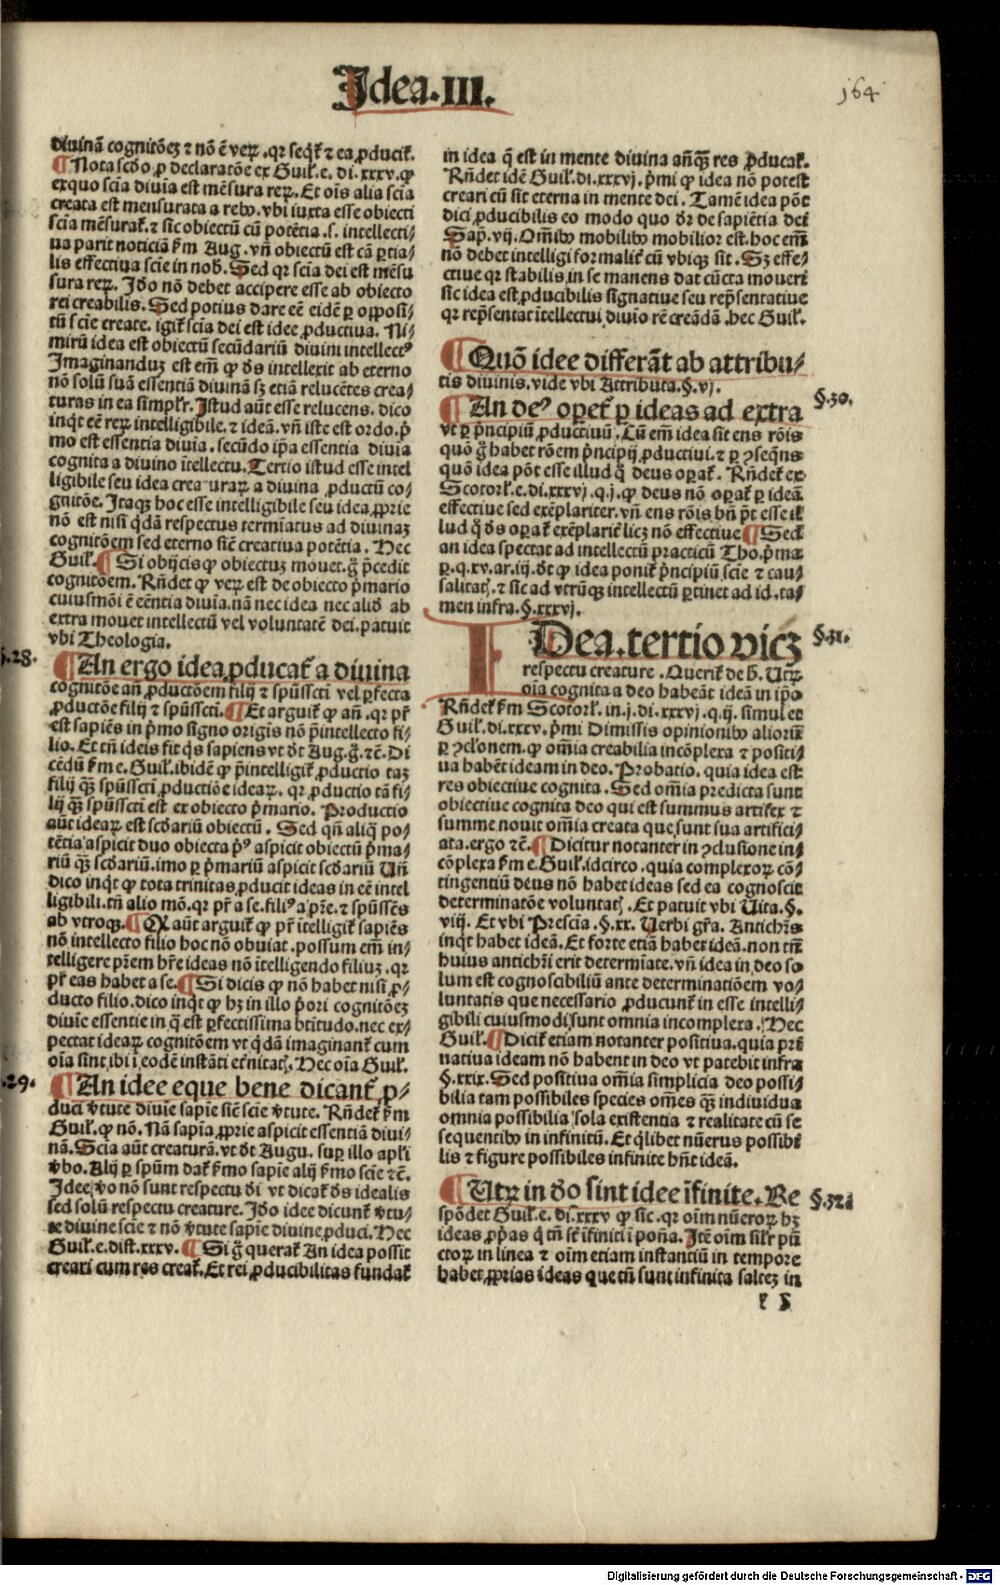 Idea.III.
164
diuinā cognitōeȝ ⁊ nō ē veꝝ.qꝛ seq̄t̄ ⁊ ea ꝓducit̄.
¶ Nota scd̄o ꝓ declaratōe ex Guil.e.di.xxxv.ꝙ
exquo scīa diuīa est mēsura reꝝ. Et oīs alia scīa
creata est mensurata a rebꝰ.vbi iuxta esse obiecti
scīa mēsurat̄.⁊ sic obiectū cū potētia.s.intellecti/
ua parit noticiā ẜm Aug.vn̄ obiectū est cā ꝑtia/
lis effectiua scīe in nob̄. Sed qꝛ scīa dei est mēsu
sura reꝝ. Iđo nō debet accipere esse ab obiecto
rei creabilis. Sed potius dare eē eidē ꝑ opposi/
tū scīe create. igit̄ scīa dei est idee ꝓductiua. Ni/
mirū idea est obiectū secūdariū diuini intellectꝰ
Imaginanduȝ est em̄ ꝙ đs intellexit ab eterno
nō solū suā essentiā diuinā sȝ etiā relucētes crea/
turas in ea simpl̄r. Istud aūt esse relucens.dico
inq̄t eē reꝝ intelligibile.⁊ ideā.vn̄ iste est ordo.p̄
mo est essentia diuīa.secūdo ip̄a essentia diuīa
cognita a diuino ītellectu. Tertio istud esse intel
ligibile seu idea creaturaꝝ a diuina ꝓductū co/
gnitōe. Itaqȝ hoc esse intelligibile seu idea ꝓprie
nō est nisi q̄dā respectus termiatus ad diuinaȝ
cognitōem sed eterno sic̄ creatiua potētia. Hec
Guil. ¶ Si obijcis ꝙ obiectuȝ mouet.ḡ p̄cedit
cognitōem. Rn̄det ꝙ veꝝ est de obiecto p̄mario
cuiusmōi ē eēntia diuīa.nā nec idea nec aliđ ab
extra mouet intellectū vel voluntatē dei.patuit
vbi Theologia.
§.28.
¶ An ergo idea ꝓducat̄ a diuina
cognitōe an̄ ꝓductōem filij ⁊ sp̄ūssct̄i vel ꝑfecta
ꝓductōe filij ⁊ sp̄ūssct̄i. ¶ Et arguit̄ ꝙ an̄.qꝛ pr̄
est sapiēs in p̄mo signo origis nō p̄intellecto fi/
lio. Et tn̄ ideis fit q̄s sapiens vt đt Aug.ḡ.⁊c̄. Di
cēdū ẜm e. Guil.ibidē ꝙ p̄intelligit̄ ꝓductio taȝ
filij q̄ȝ sp̄ūssct̄i ꝓductiōe ideaꝝ.qꝛ ꝓductio tā fi/
lij q̄ȝ sp̄ūssct̄i est ex obiecto p̄mario. Productio
aūt ideaꝝ est scđariū obiectū. Sed qn̄ aliq̄ po/
tētia aspicit duo obiecta p̄ꝰ aspicit obiectū p̄ma/
riū q̄ȝ scđariū.imo ꝑ p̄mariū aspicit scđariū Vn̄
dico inq̄t ꝙ tota trinitas ꝓducit ideas in eē intel
ligibili.tn̄ alio mō.qꝛ pr̄ a se.filiꝰ a pr̄e.⁊ sp̄ūssc̄s
ab vtroqȝ. ¶ Q aūt arguit̄ ꝙ pr̄ ītelligit̄ sapiēs
nō intellecto filio hoc nō obuiat.possum em̄ in/
telligere pr̄em hr̄e ideas nō ītelligendo filiuȝ.qꝛ
pr̄ eas habet a se. ¶ Si dicis ꝙ nō habet nisi ꝓ/
ducto filio.dico inq̄t ꝙ hȝ in illo p̄ori cognitōeȝ
diuīe essentie in q̄ est ꝑfectissima btitudo.nec ex/
pectat ideaꝝ cognitōem vt q̄dā imaginant̄ cum
oīa sint ibi ī eodē instāti et̄nitat̄. Hec oīa Guil.
§.29.
¶ An idee eque bene dicant̄ ꝓ/
duci v̄tute diuīe sapīe sic̄ scīe v̄tute. Rn̄det̄ ẜm
Guil.ꝙ nō. Nā sapīa ꝓprie aspicit essentiā diui/
nā. Scīa aūt creaturā.vt đt Augu.suꝑ illo apl̄i
v̄bo. Alij ꝑ spūm dat̄ ẜmo sapīe alij ẜmo scīe ⁊c̄.
Idee v̄o nō sunt respectu đi vt dicat̄ đs idealis
sed solū respectu creature. Iđo idee dicunt̄ v̄tu/
te diuine scīe ⁊ nō v̄tute sapīe diuine ꝓduci. Hec
Guil.e.dist.xxxv. ¶ Si ḡ querat̄ An idea possit
creari cum res creat̄. Et rei ꝓducibilitas fundat̄
in idea q̄ est in mente diuina an̄q̄ȝ res ꝓducat̄.
Rn̄det idē Guil.di.xxxvj.p̄mi ꝙ idea nō potest
creari cū sit eterna in mente dei. Tamē idea pōt
dici ꝓducibilis eo modo quo đr de sapiētia dei
Sap̄.vij. Om̄ibꝰ mobilibꝰ mobilior est.hoc em̄
nō debet intelligi formalit̄ cū vbiqȝ sit. Sȝ effe/
ctiue qꝛ stabilis in se manens dat cūcta moueri
sic idea est ꝓducibilis signatiue seu rep̄sentatiue
qꝛ rep̄sentat ītellectui diuīo rē creādā.hec Guil.
¶ Quō idee differāt ab attribu/
tis diuinis.vide vbi Attributa.§.vj.
§.30.
¶ An deꝰ oꝑet̄ ꝑ ideas ad extra
vt ꝑ p̄ncipiū ꝓductiuū. Cū em̄ idea sit ens rōis
quō ḡ habet rōem p̄ncipij ꝓductiui.⁊ ꝑ ꝯseq̄ns
quō idea pōt esse illud q̄ deus oꝑat̄. Rn̄det̄ ex
Scotorl̄.e.di.xxxvj.q.j.ꝙ deus nō oꝑat̄ ꝑ ideā
effectiue sed exēplariter.vn̄ ens rōis bn̄ pōt esse il
lud q̄ đs oꝑat̄ exēplarit̄ licȝ nō effectiue ¶ Sed
an idea spectat ad intellectū practicū Tho.p̄ma
ꝑ.q.xv.ar.iij.đt ꝙ idea ponit̄ p̄ncipiū scīe ⁊ cau/
salitat̄.⁊ sic ad vtrūqȝ intellectū ꝑtinet ad id.ta/
men infra.§.xxxvj.
§.31.
IDea.tertio viꝫ
respectu creature. Querit̄ de h̄. Utꝝ
oīa cognita a deo habeāt ideā in ip̄o
Rn̄det̄ ẜm Scotorl̄.in.j.di.xxxvj.q.ij.simul et
Guil.di.xxxv.p̄mi Dimissis opinionibꝰ aliorū
ꝑ ꝯcl̄onem.ꝙ om̄ia creabilia incōplexa ⁊ positi/
ua habēt ideam in deo. Probatio.quia idea est
res obiectiue cognita. Sed om̄ia predicta sunt
obiectiue cognita deo qui est summus artifex ⁊
summe nouit om̄ia creata que sunt sua artifici/
ata.ergo ⁊c̄. ¶ Dicitur notanter in ꝯclusione in/
cōplexa ẜm e. Guil.idcirco.quia complexoꝝ cō/
tingentiū deus nō habet ideas sed ea cognoscit
determinatōe voluntat̄. Et patuit vbi Uita.§.
viij. Et vbi Prescīa.§.xx. Uerbi gr̄a. Antichr̄is
inq̄t habet ideā. Et forte etiā habet ideā.non tn̄
huius antichr̄i erit determīate.vn̄ idea in deo so
lum est cognoscibiliū ante determinatiōem vo/
luntatis que necessario ꝓducunt̄ in esse intelli/
gibili cuiusmodi sunt omnia incomplexa. Hec
Guil. ¶ Dicit̄ etiam notanter positiua.quia pri
uatiua ideam nō habent in deo vt patebit infra
§.xxix. Sed positiua om̄ia simplicia deo possi/
bilia tam possibiles species om̄es q̄ȝ indiuidua
omnia possibilia sola existentia ⁊ realitate cū se
sequentibꝰ in infinitū. Et q̄libet nūerus possibi
lis ⁊ figure possibiles infinite hn̄t ideā.
§.32.
¶ Utꝝ in đo sint idee īfinite. Re
spōdet Guil.e.di.xxxv ꝙ sic.qꝛ oīm nūeroꝝ hȝ
ideas ꝓp̄as q̄ tn̄ st̄ īfiniti ī pōna. Itē oīm sil̄r pū
ctoꝝ in linea ⁊ oīm etiam instantiū in tempore
habet ꝓprias ideas que tn̄ sunt infinita salteȝ in
r 5
Digitalisierung gefördert durch die Deutsche Forschungsgemeinschaft - DFG